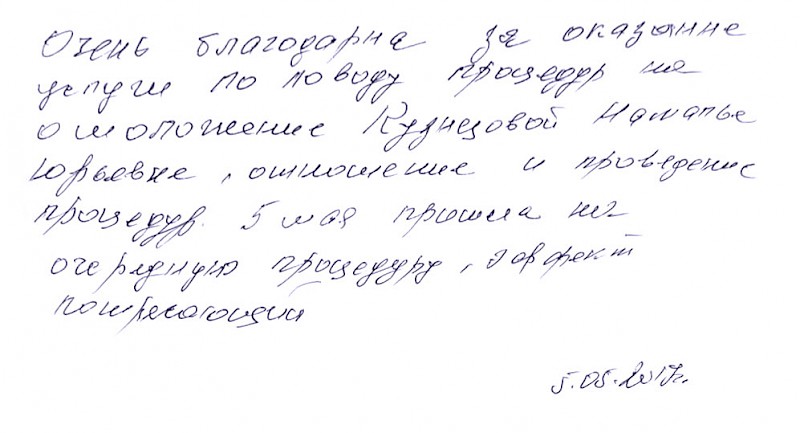 Очень благодарна за оказание
услуги по поводу процедур на
омоложение Кузнецовой Наталье
Юрьевне, отношение и проведение
процедур. 5 мая пришла на
очередную процедуру, эффект
потресающий
5.05.2017г.